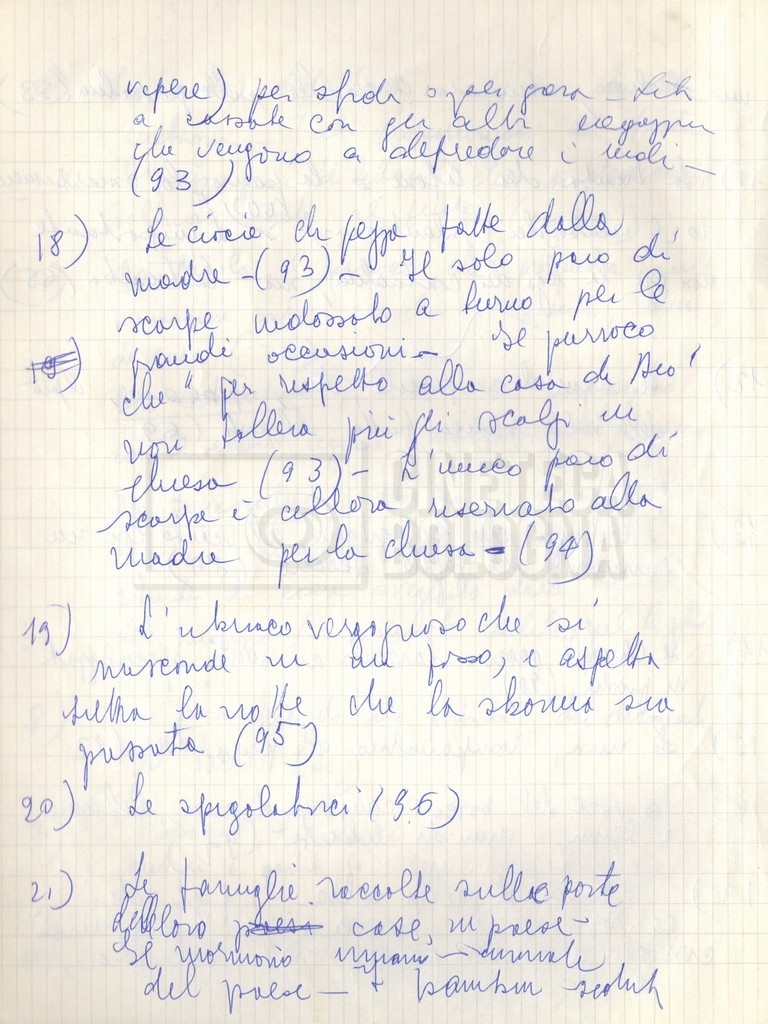 vipere) per sfida o per gara - Liti
a sassate con gli altri ragazzi
che vengono a depredare i nidi -
(93)
18) Le ciocie di pezza fatte dalla
madre - (93) - Il solo paio di
scarpe indossato a turno per le
grandi occasioni - Il parroco
che "per rispetto alla casa di Dio"
non tollera più gli scalzi in
chiesa (93) - L'unico paio di
scarpe è allora riservato alla
madre per la chiesa - (94)
19) L'ubriaco vergognoso che si
nasconde in un fosso, e aspetta
tutta la notte che la sbornia sia
passata (95)
20) Le spigolatrici (96)
21) Le famiglie raccolte sulle porte
delle loro case, in paese -
Il mormorio umano - animale
del paese - I bambini seduti
CINETECA
BOLOGNA